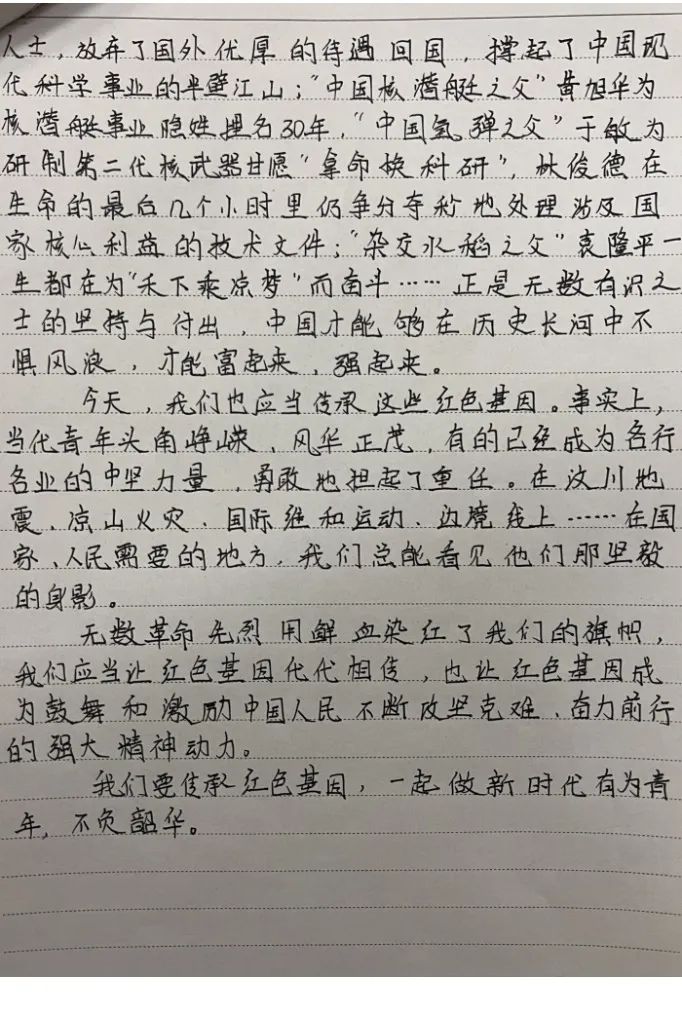 人士，放弃了国外优厚的待遇回国，撑起了中国现
代科学事业的半壁江山；“中国核潜艇之父”黄旭华为
核潜艇事业隐姓埋名30年，“中国氢弹之父”于敏为
研制第二代核武器甘愿“拿命换科研”，林俊德在
生命的最后几个小时里仍争分夺秒地处理涉及国
家核心利益的技术文件；“杂交水稻之父”袁隆平一
生都在为“禾下乘凉梦”而奋斗……正是无数有识之
士的坚持与付出，中国才能够在历史长河中不
惧风浪，才能富起来，强起来。
今天，我们也应当传承这些红色基因。事实上，
当代青年头角峥嵘、风华正茂，有的已经成为各行
各业的中坚力量，勇敢地担起了重任。在汶川地
震、凉山火灾、国际维和运动、边境线上……在国
家、人民需要的地方，我们总能看见他们那坚毅
的身影。
无数革命先烈用鲜血染红了我们的旗帜，
我们应当让红色基因代代相传，也让红色基因成
为鼓舞和激励中国人民不断攻坚克难、奋力前行
的强大精神动力。
我们要传承红色基因，一起做新时代有为青
年，不负韶华。